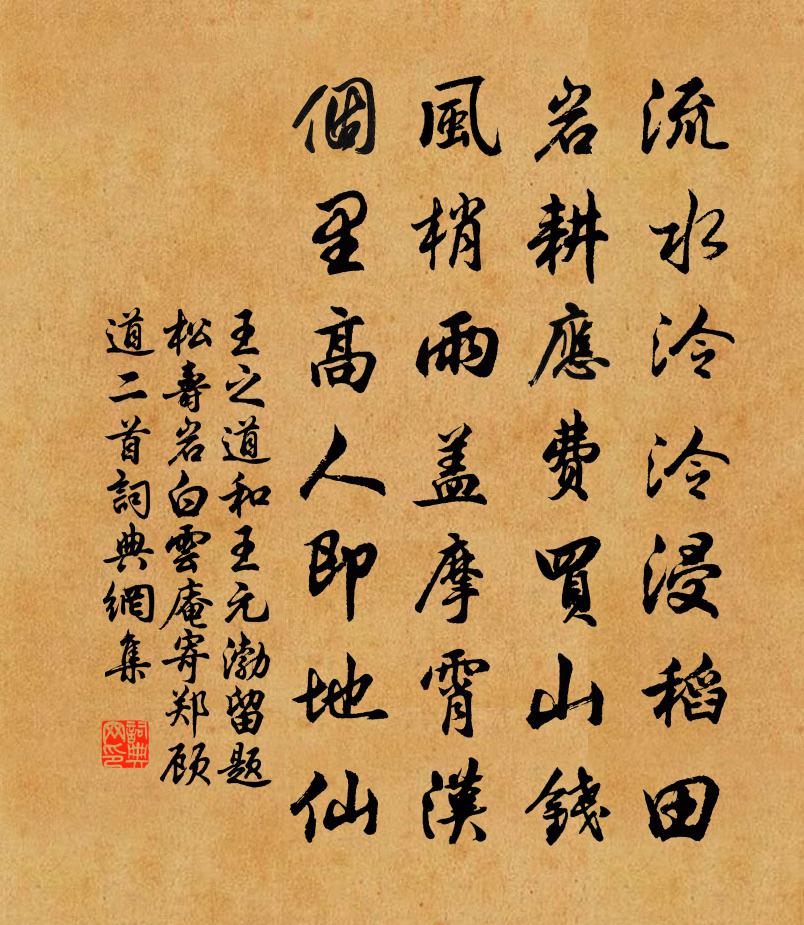 流水泠泠浸稻田
岩耕應費買山錢
風梢雨盖摩霄漢
個里高人即地仙
王之道和王元渤留題
松壽岩白雲庵寄郑顾
道二首詞典網集
詞典網印